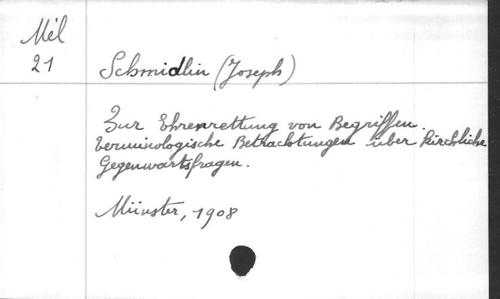 Mél
21
Schmidlin (Joseph)
Zur Ehrenrettung von Begriffen.
terminologische Betrachtungen über kirchliche
Gegenwartsfragen.
Münster, 1908